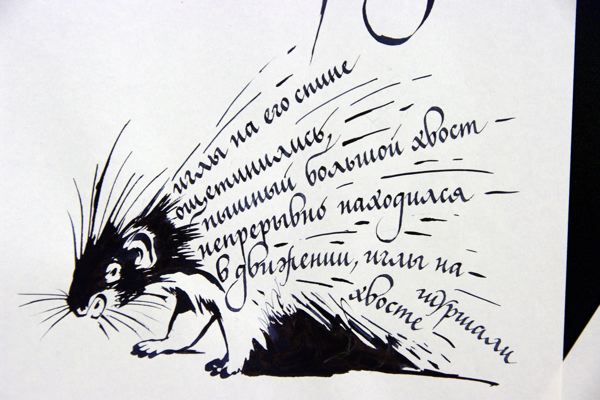 иглы на его спине
ощетинились,
пышный большой хвост
непрерывно находился
в движении, иглы на
хвосте шуршали